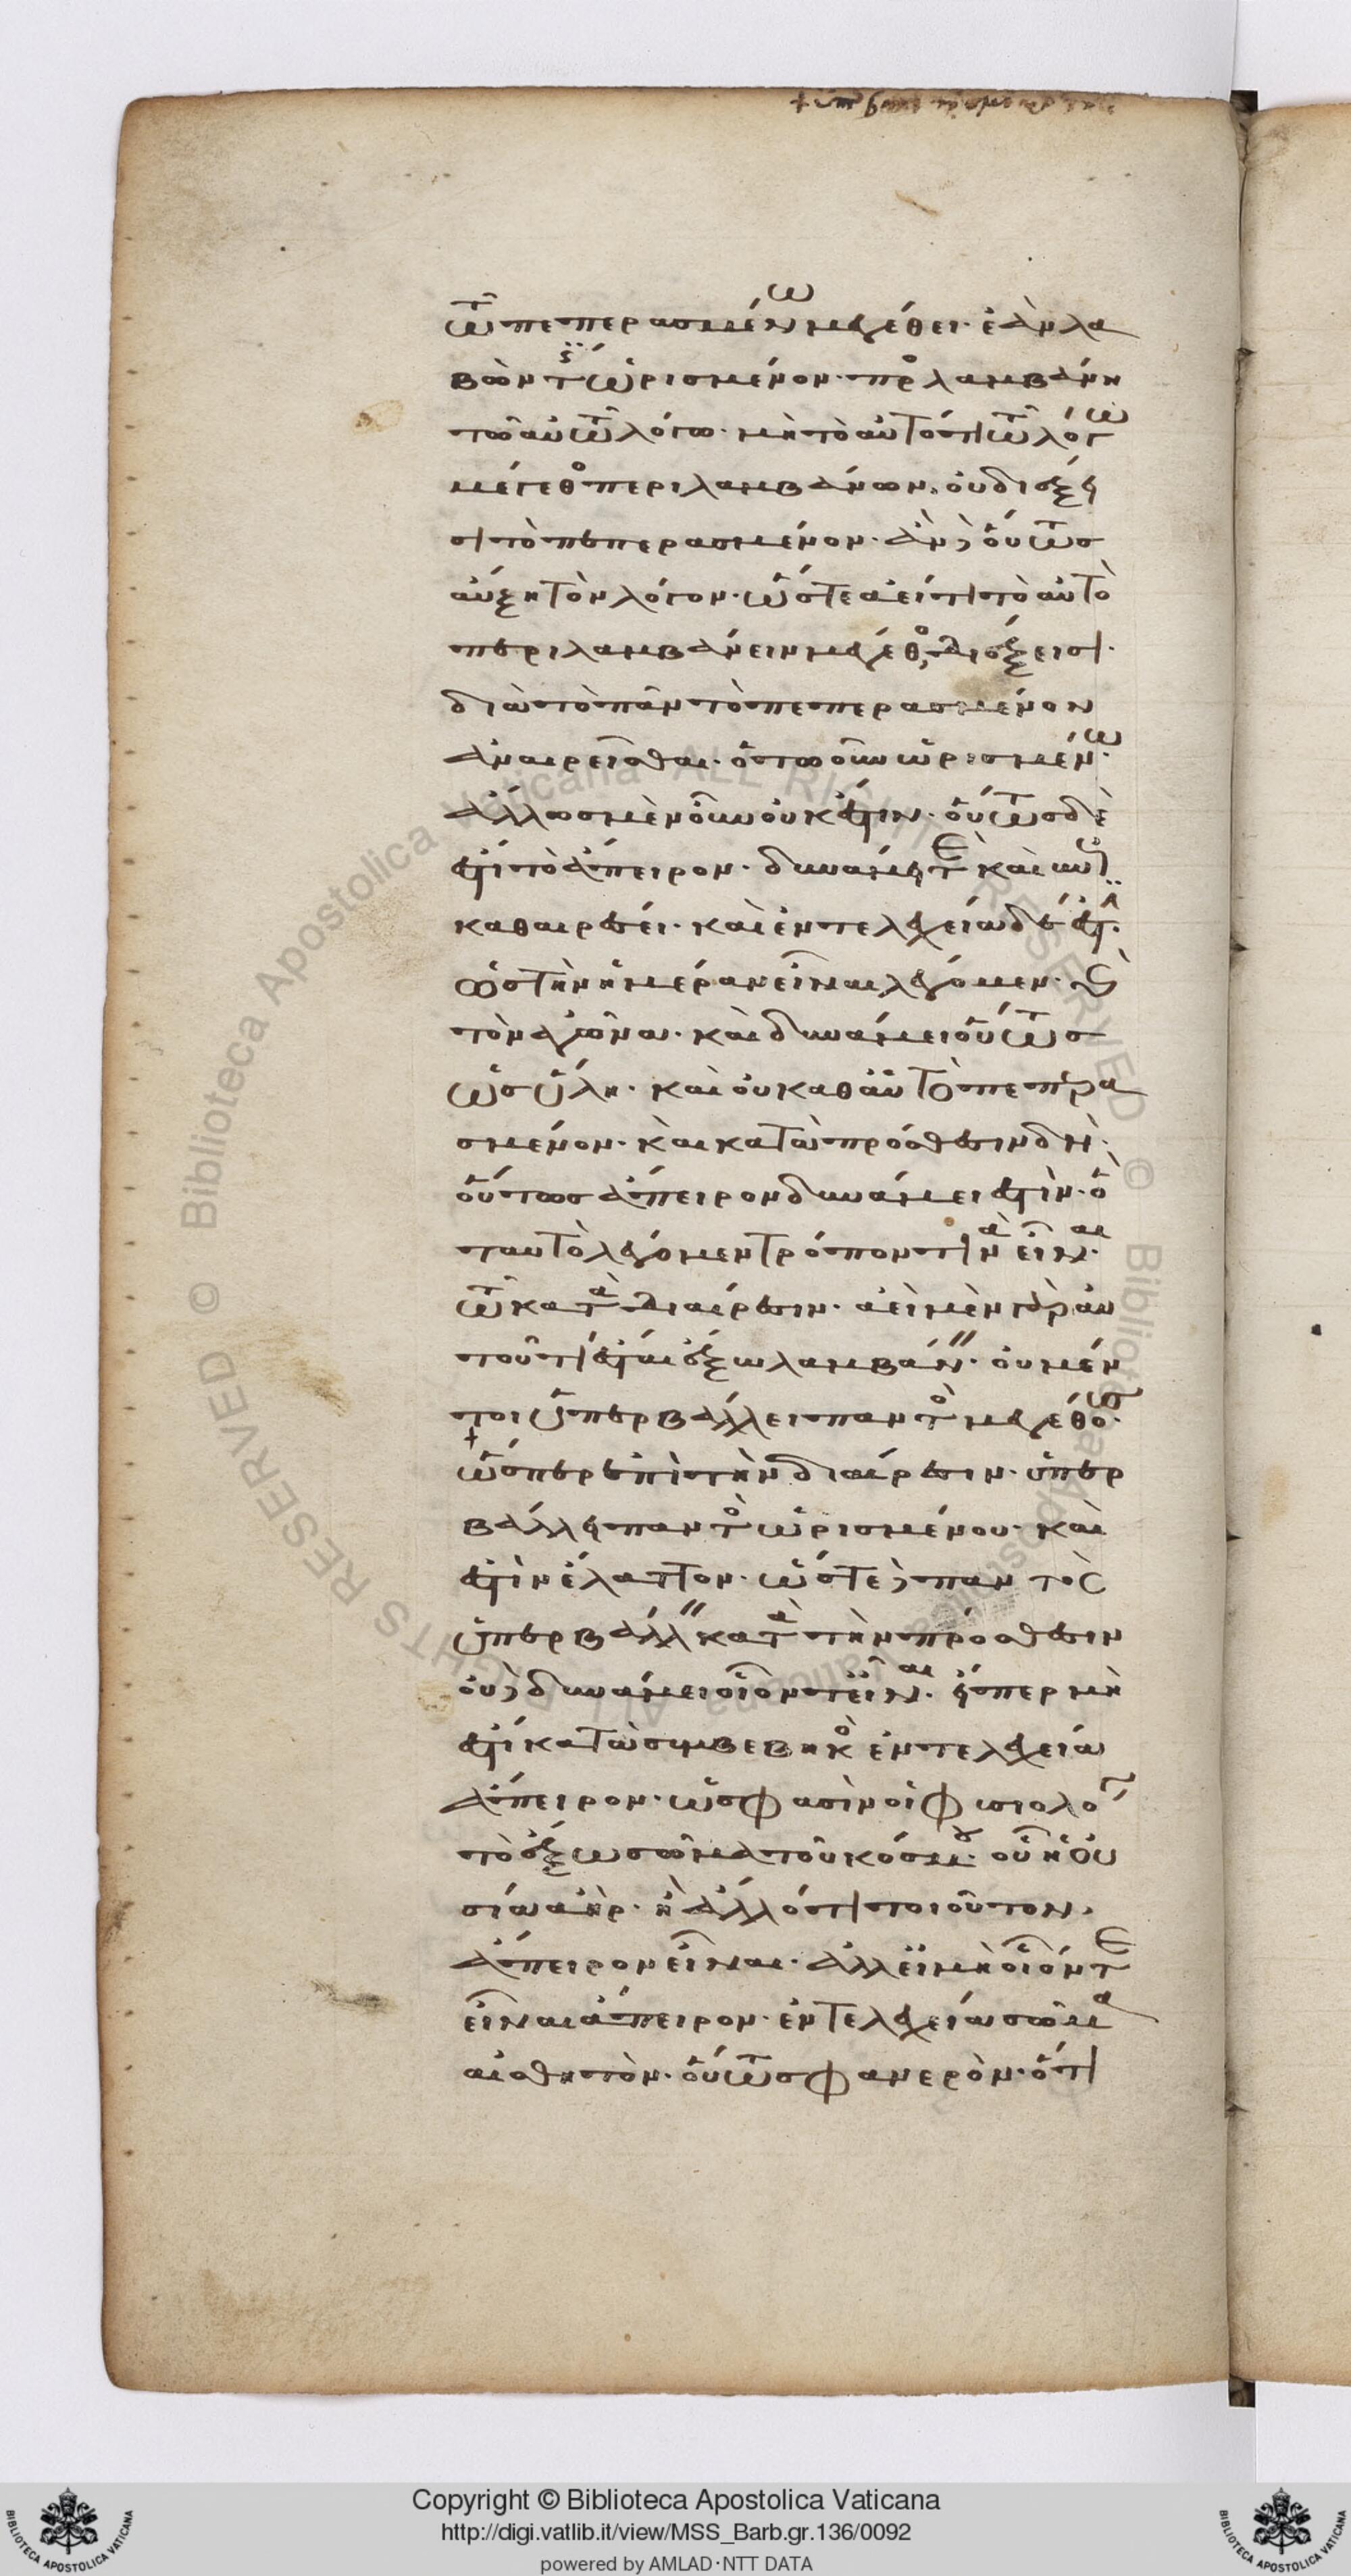 τῶ πεπερασμένω μεγέθει· ἐὰν λα
βών τις ὡρισμένον· προσλαμβάνη
τῶ αὐτῶ λόγω· μὴ τὸ αὐτό τι τῶ λόγω
μέγεθος περιλαμβάνων, οὐ διέξει
σι τὸ πεπερασμένον· ἂν δ' οὕτως
αὔξη τὸν λόγον· ὥστε ἀεί τι τὸ αὐτὸ
περιλαμβάνειν μέγεθος, διέξεισι·
διὰ τὸ πᾶν τὸ πεπερασμένον
ἀναιρεῖσθαι· ὁτωοῦν ὡρισμένω·
ἄλλως μὲν οὖν οὐκ ἔστιν· οὕτως δὲ
ἐστὶ τὸ ἄπειρον· δυνάμει τε καὶ ἐπὶ
καθαιρέσει· καὶ ἐντελεχεία δέ ἐστιν·
ὡς τὴν ἡμέραν εἶναι λέγομεν· καὶ
τὸν ἀγῶνα· καὶ δυνάμει οὕτως
ὡς ὕλη· καὶ οὐ καθ' αὑτὸ πεπερα
σμένον· καὶ κατὰ πρόσθεσιν δὴ·
οὕτως ἄπειρον δυνάμει ἐστὶν· ὃ
ταυτὸ λέγομεν τρόπον τινὰ εἶναι·
τῶ κατὰ διαίρεσιν· ἀεὶ μὲν γὰρ αὐ
τοῦ τι ἔσται ἔξω λαμβάνειν· οὐ μέν
τοι ὑπερβάλλει παντὸς μεγέθους·
ὥσπερ ἐπὶ τὴν διαίρεσιν· ὑπερ
βάλλει παντὸς ὡρισμένου· καὶ
ἐστὶν ἔλαττον· ὥστε δὲ παντὸς
ὑπερβάλλειν κατὰ τὴν πρόσθεσιν
οὐδὲ δυνάμει οἷόν τε εἶναι· εἴπερ μὴ
ἐστὶ κατὰ συμβεβηκὸς ἐντελεχεία
ἄπειρον· ὥς φασιν οἱ φυσιολόγοι
τὸ ἔξω σῶμα τοῦ κόσμου· οὗ ἡ οὐ
σία ἀὴρ· ἢ ἄλλό τι τοιοῦτον,
ἄπειρον εἶναι· ἀλλ' εἰ μὴ οἷόν τε
εἶναι ἄπειρον· ἐντελεχεία σῶμα
αἰσθητὸν· οὕτως φανερὸν· ὅτι
Copyright © Biblioteca Apostolica Vaticana
http://digi.vatlib.it/view/MSS_Barb.gr.136/0092
powered by AMLAD·NTT DATA